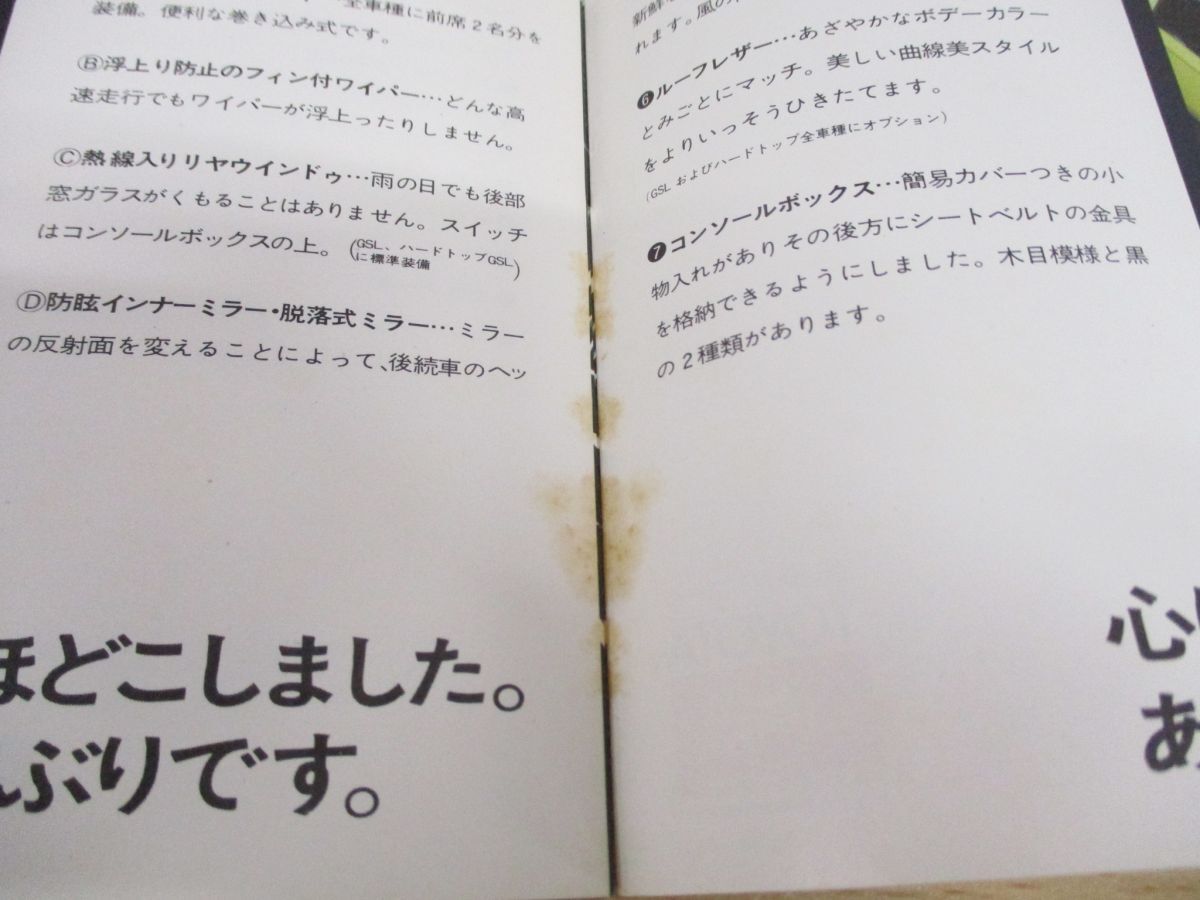 全車種に前席2名分を
装備。便利な巻き込み式です。
Ⓑ浮上り防止のフィン付ワイパー…どんな高
速走行でもワイパーが浮上ったりしません。
Ⓒ熱線入りリヤウインドゥ…雨の日でも後部
窓ガラスがくもることはありません。スイッチ
はコンソールボックスの上。(GSL、ハードトップGSLに標準装備)
Ⓓ防眩インナーミラー・脱落式ミラー…ミラー
の反射面を変えることによって、後続車のヘッ
ほどこしました。
ぶりです。
新鮮
れます。風の
❻ルーフレザー…あざやかなボデーカラー
とみごとにマッチ。美しい曲線美スタイル
をよりいっそうひきたてます。
(GSLおよびハードトップ全車種にオプション)
❼コンソールボックス…簡易カバーつきの小
物入れがありその後方にシートベルトの金具
を格納できるようにしました。木目模様と黒
の2種類があります。
心
あ